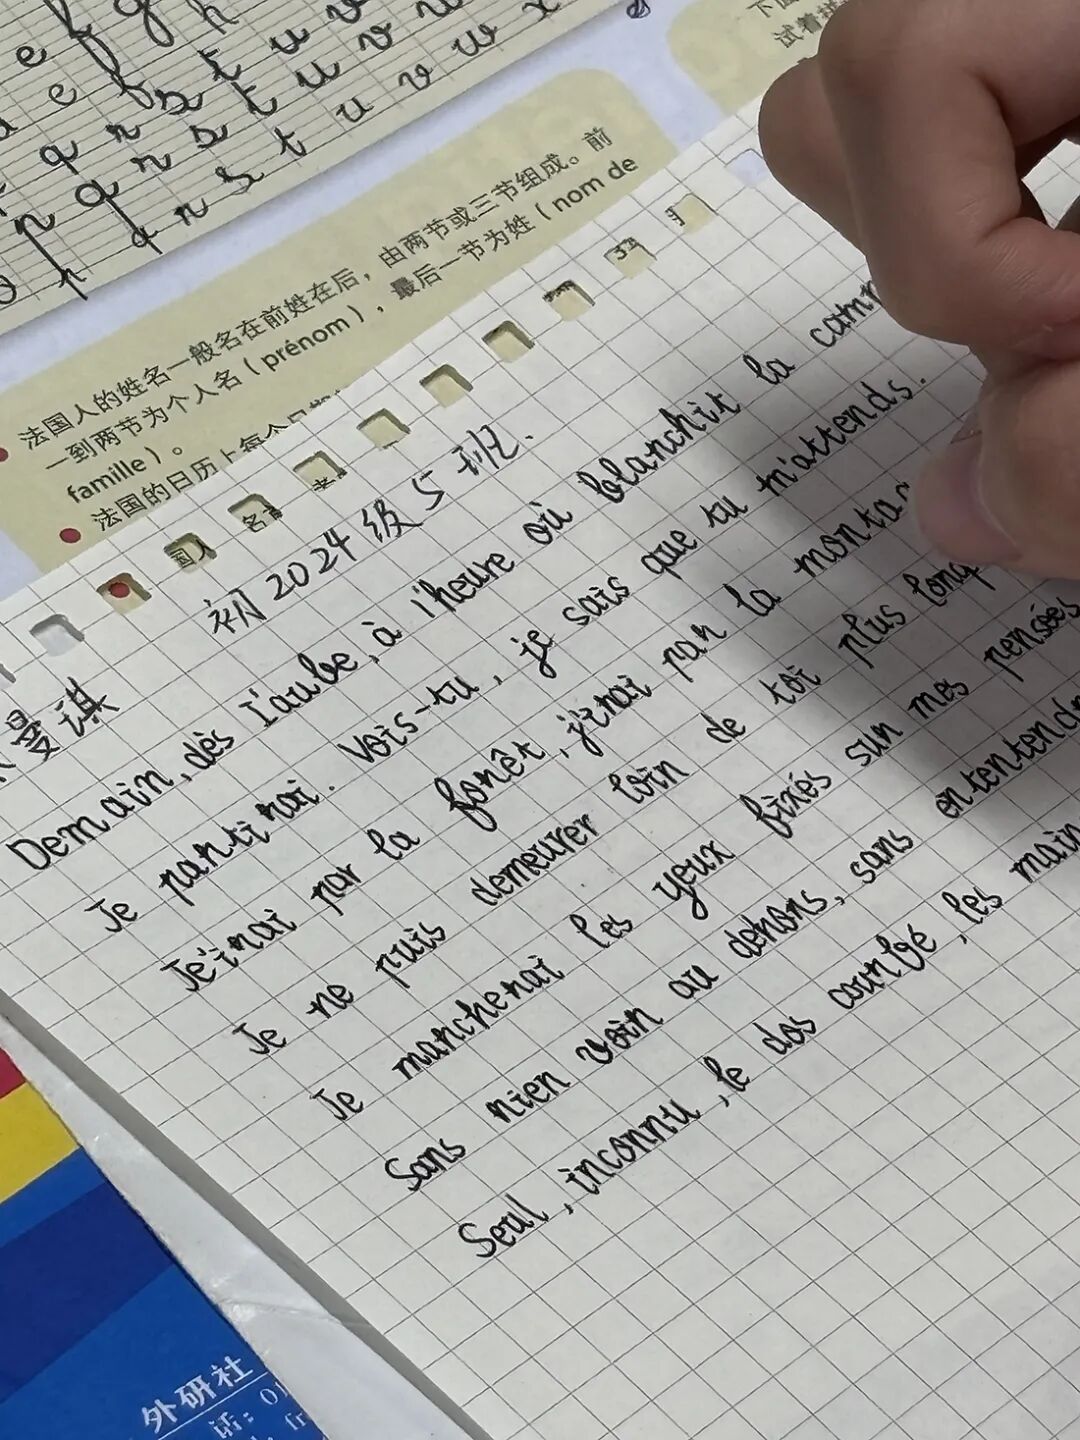 e f g h
e f g h
q r s t u v w
p q r s t u v w x
p q r s t u v w x
试着
法国人的姓名一般名在前姓在后，由两节或三节组成。前
一到两节为个人名（prénom），最后一节为姓（nom de
famille）。
法国的日历上每个日期
国人 名
初2024级5班.
曼琪
Demain, dès l'aube, à l'heure où blanchit la camp
Je partirai. Vois-tu, je sais que tu m'attends.
Je'irai par la forêt, j'irai par la montag
Je ne puis demeurer loin de toi plus long
Je marcherai les yeux fixés sur mes pensées
Sans rien voir au dehors, sans ententendre
Seul, inconnu, le dos courbé, les main
外研社
话：01